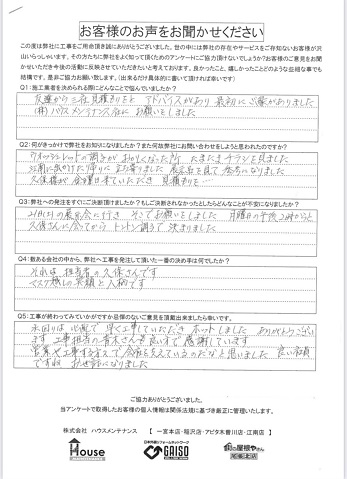 お客様のお声をお聞かせください
この度は弊社に工事をご用命頂き誠にありがとうございました。世の中には弊社の存在やサービスをご存知ないお客様が沢
山いらっしゃいます。その方たちに弊社をよく知って頂くためのアンケートにご協力頂けないでしょうか?お客様のご意見をお聞
かせいただき今後の活動に反映させていただきたいと考えております。良かったこと、嬉しかったことどのような些細な事でも
結構です。是非ご協力お願い致します。(出来るだけ具体的に書いて頂ければ幸いです)
Q1:施工業者を決められる際にどんなことで悩んでいましたか?
友達から三社見積もりをと アドバイスがあり 最初にご縁がありました
(株)ハウスメンテナンス社に お願いをしました
Q2:何がきっかけで弊社をお知りになりましたか?また何故弊社にお問い合わせをしようと思われたのですか?
ウォシュレットの調子がおかしくなった所 たまたまチラシを見ました
江南に出かけた帰りに 立ち寄りました
久保様が 見積もりを
Q3:弊社への発注をすぐにご決断頂けましたか?もしご決断されなかったとしたらどんなことが不安になりましたか?
の展示会に行き そこでお願いをしました 月曜日の午後2時からと
久保さんに会ってから トントン調子で 決まりました
Q4:数ある会社の中から、弊社へ工事を発注して頂いた一番の決め手は何でしたか?
それは 担当者の久保さんです
マスク越しの笑顔と人柄です
Q5:工事が終わってみていかがですか忌憚のないご意見を頂戴出来ましたら幸いです。
早く工事していただき ホットしました ありがとうござい
ます 工事担当の青木さんも良い方で感謝しています
営業や工事する方々で会社を支えているのだなと思いました 良い社員
ですね お世話になりました
ご協力ありがとうございました。
当アンケートで取得したお客様の個人情報は関係法規に基づき厳正に管理いたします。
株式会社 ハウスメンテナンス 【 一宮本店・稲沢店・アピタ木曽川店・江南店 】
House
日本外装リフォームネットワーク
GAISO
街の屋根やさん